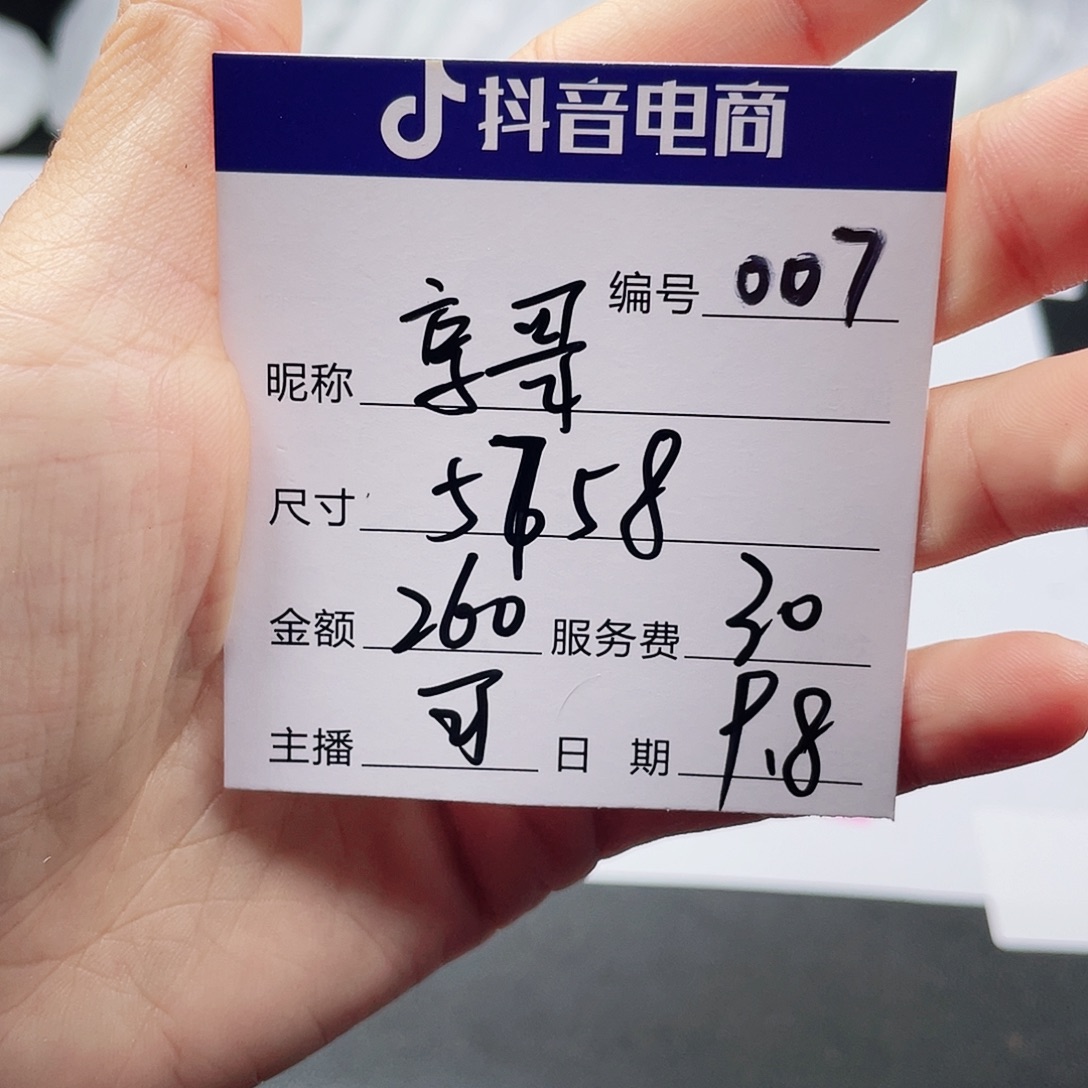 抖音电商
编号 007
昵称 享哥
尺寸 5658
金额 260 服务费 30
主播 日期 9.8